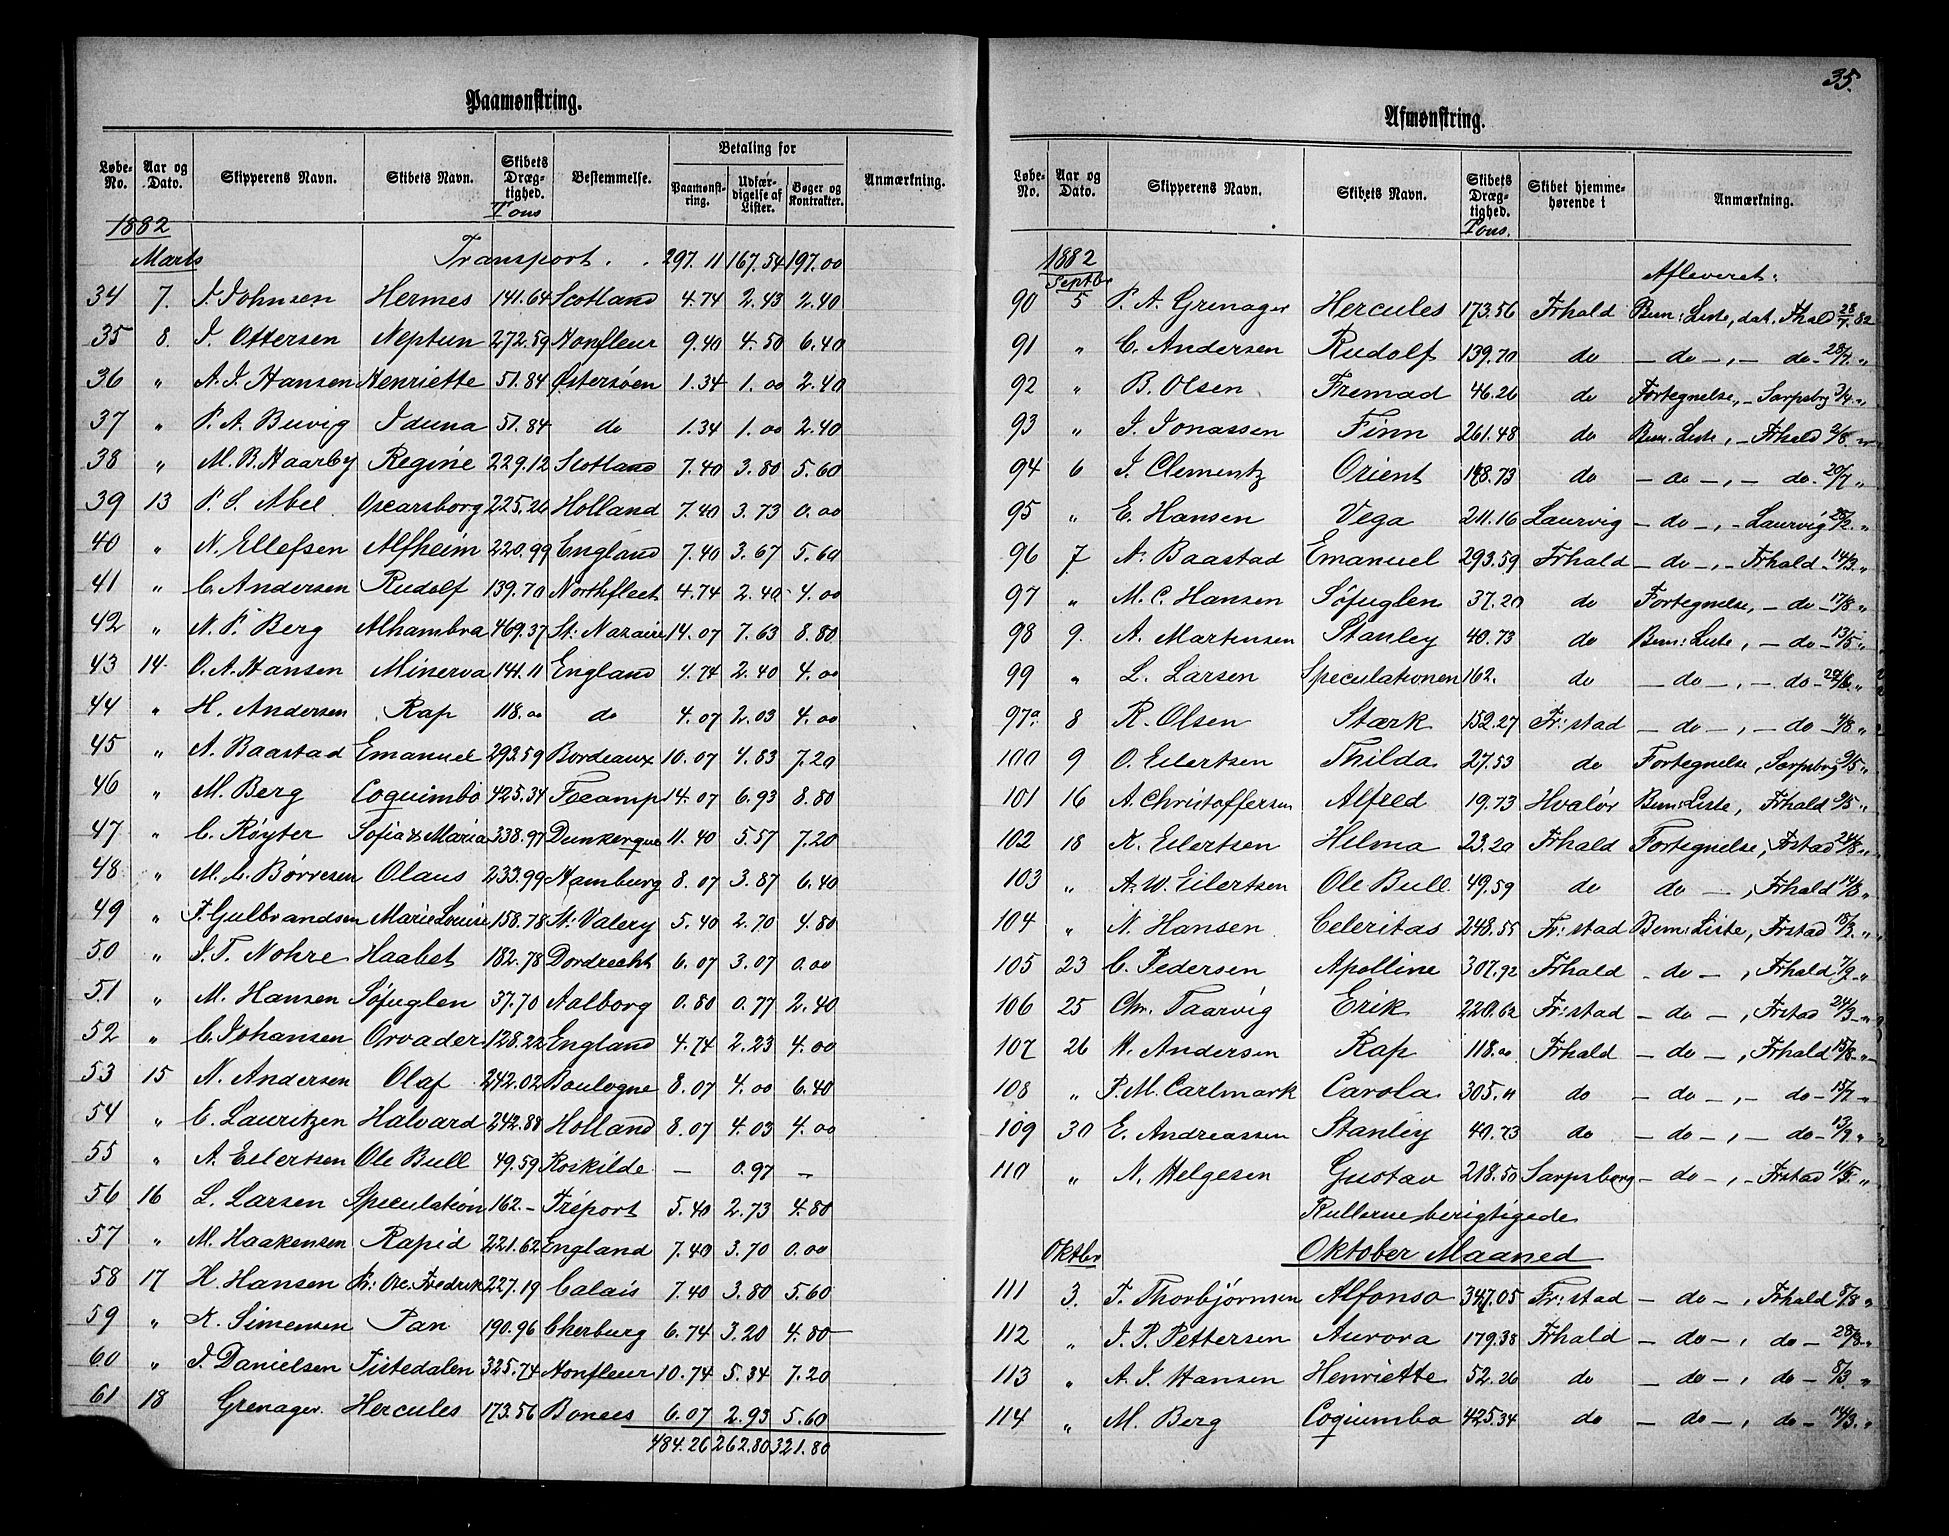 Paamønstring.
Løbe-No. | Aar og Dato. | Skipperens Navn. | Skibets Navn. | Skibets Dræg-tighed. Tons | Bestemmelse. | Betaling for | Paamønst-ring. | Udfær-digelse af Lister. | Bøger og Kontrakter. | Anmærkning.
1882
Marts Transport . . 297.11 167.54 197.00
34 7. J. Johnsen Hermes 141.64 Scotland 4.74 2.43 2.40
35 8. J. Ottersen Neptun 272.59 Honfleur 9.40 4.50 6.40
36 " A. J. Hansen Henriette 51.84 Østersøen 1.34 1.00 2.40
37 " P. A. Buvig Iduna 51.84 do 1.34 1.00 2.40
38 " M. B. Haarby Regine 229.12 Scotland 7.40 3.80 5.60
39 13 P. S. Abel Oscarsborg 225.26 Holland 7.40 3.73 0.00
40 " N. Ellefsen Alfheim 220.99 England 7.40 3.67 5.60
41 " C. Andersen Rudolf 139.70 Northfleet 4.74 2.40 4.00
42 " N. P. Berg Alhambra 469.37 St. Nazaire 14.07 7.63 8.80
43 14 O. A. Hansen Minerva 141.11 England 4.74 2.40 4.00
44 " H. Andersen Rap 118.00 do 4.07 2.03 4.00
45 " A. Baastad Emanuel 293.59 Bordeaux 10.07 4.83 7.20
46 " M. Berg Coquimbo 425.34 Fecamp 14.07 6.93 8.80
47 " C. Røyter Sofia & Maria 338.97 Dunkerque 11.40 5.57 7.20
48 " M. L. Børresen Olaus 233.99 Hamburg 8.07 3.87 6.40
49 " F. Gulbrandsen Marie Louise 158.78 St. Valery 5.40 2.70 4.80
50 " J. T. Nohre Haabet 182.78 Dordrecht 6.07 3.07 0.00
51 " M. Hansen Søfuglen 37.70 Aalborg 0.80 0.77 2.40
52 " C. Johansen Orvader 128.22 England 4.74 2.23 4.00
53 15 N. Andersen Olaf 242.02 Boulogne 8.07 4.00 6.40
54 " C. Lauritzen Halvard 242.88 Holland 8.07 4.03 4.00
55 " A. Eilertsen Ole Bull 49.59 Roskilde — 0.97 —
56 16 L. Larsen Speculation 162.- Tréport 5.40 2.73 4.80
57 " M. Haakensen Rapid 221.62 England 7.40 3.70 0.00
58 17 H. Hansen Fredrik 227.19 Calais 7.40 3.80 5.60
59 " K. Simensen Pan 190.96 Cherburg 6.74 3.20 4.80
60 " J. Danielsen Tistedalen 325.74 Honfleur 10.74 5.34 7.20
61 18 Grenager Hercules 173.56 Boness 6.07 2.93 5.60
484.26 262.80 321.80
35.
Afmønstring.
Løbe-No. | Aar og Dato. | Skipperens Navn. | Skibets Navn. | Skibets Dræg-tighed. Tons. | Skibet hjemme-hørende i | Anmærkning.
1882
Septb. Afleveret:
90 5 P. A. Grenager Hercules 173.56 Frhald Bem: Liste, dat. Fhald 28/7 82
91 " C. Andersen Rudolf 139.70 do - do -,- do - 28/7 "
92 " B. Olsen Fremad 46.26 do Fortegnelse, - Sarpsbrg "
93 " J. Jonassen Finn 261.48 do Bem: Liste, - Frhald 2/8 "
94 6 J. Clementz Orient do - do -,- do - 20/7 "
95 " E. Hansen Vega 211.16 Laurvig - do -,- Laurvig "
96 7 A. Baastad Emanuel 293.59 Frhald - do -,- Frhald - 14/3 "
97 " M. C. Hansen Søfuglen 37.20 do Fortegnelse, - do - 17/8 "
98 9. A. Martinsen Stanley 40.73 do Bem: Liste, - do - 13/5 "
99 " L. Larsen Speculationen 162. do - do -,- do - "
97a 8 R. Olsen Stærk 152.27 Fr:stad - do -,- do - 4/8 "
100 9 O. Eilertsen Thilda 27.53 do Fortegnelse, Sarpsbrg 9/5 "
101 16 A. Christoffersen Alfred 19.73 Hvalør Bem: Liste, Frhald 9/5 "
102 18 K. Eilertsen Helma 23.20 Frhald Fortegnelse, Frstad 24/8 "
103 " A. W. Eilertsen Ole Bull 49.59 do do -, Frhald 14/8 "
104 " N. Hansen Celeritas 248.55 Fr:stad Bem: Liste, Frstad 18/3 "
105 23 C. Pedersen Apolline 307.92 Frhald - do -, Frhald 7/9 "
106 25 Chr. Taarvig Erik 220.62 Fr:stad - do -, Frstad 24/3 "
107 26 H. Andersen Rap 118.00 Frhald - do -, Frhald 15/8 "
108 " P. M. Carlmark Carola 305.11 do - do -,- do - 15/7 "
109 30 E. Andreassen Stanley 40.73 do - do -,- do - 13/9 "
110 " N. Helgesen Gustav 218.50 Sarpsborg - do -,- Frstad 11/5 "
Rullerne berigtigede
Oktbr Oktober Maaned
111 3. T. Thorbjørnsen Alfonso 347.05 Fr:stad - do -, Frhald 8/8 "
112 " J. P. Pettersen Aurora 179.38 Frhald - do -, do - 28/8 "
113 " A. J. Hansen Henriette 52.26 do - do -, do - 8/3 "
114 " M. Berg Coquimbo 425.34 do - do -, do - 14/3 "